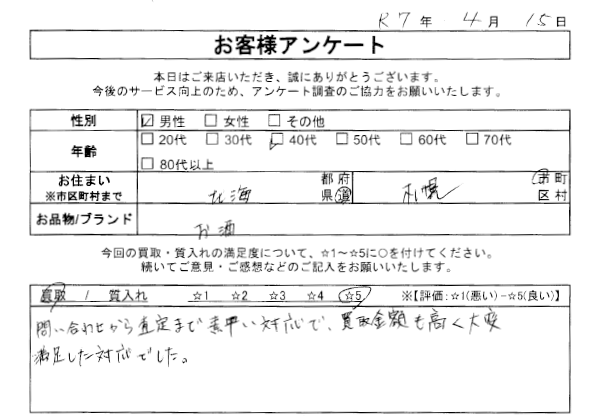 R7年 4月 15日
お客様アンケート
本日はご来店いただき、誠にありがとうございます。
今後のサービス向上のため、アンケート調査のご協力をお願いいたします。
性別 ☑男性 □女性 □その他
年齢 □20代 □30代 ☑40代 □50代 □60代 □70代
□80代以上
お住まい
※市区町村まで
北海 都府県道 札幌 市町区村
お品物/ブランド お酒
今回の買取・質入れの満足度について、☆1～☆5に○を付けてください。
続いてご意見・ご感想などのご記入をお願いいたします。
買取 / 質入れ ☆1 ☆2 ☆3 ☆4 ☆5 ※【評価:☆1(悪い)－☆5(良い)】
問い合わせから査定まで素早い対応で、買取金額も高く大変
満足した対応でした。